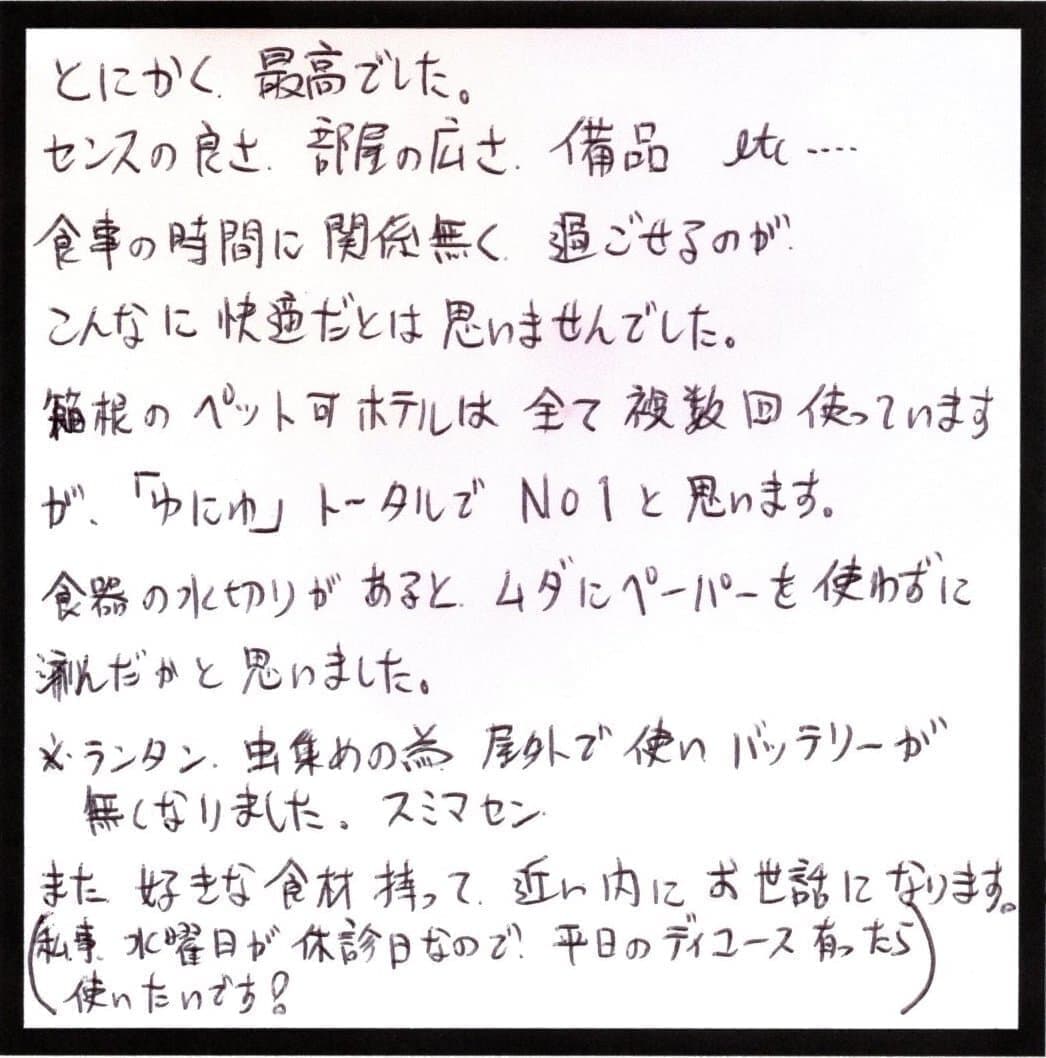 とにかく、最高でした。
センスの良さ、部屋の広さ、備品 etc ‥‥
食事の時間に関係無く、過ごせるのが、
こんなに快適だとは思いませんでした。
箱根のペット可ホテルは全て複数回使っています
が、「ゆにゆ」トータルで No1と思います。
食器の水切りがあると、ムダにペーパーを使わずに
済んだかと思いました。
※ランタン、虫集めの為、屋外で使いバッテリーが
無くなりました。スミマセン
また、好きな食材持って、近い内にお世話になります。
(私事、水曜日が休診日なので、平日のデイユース有ったら
使いたいです!)